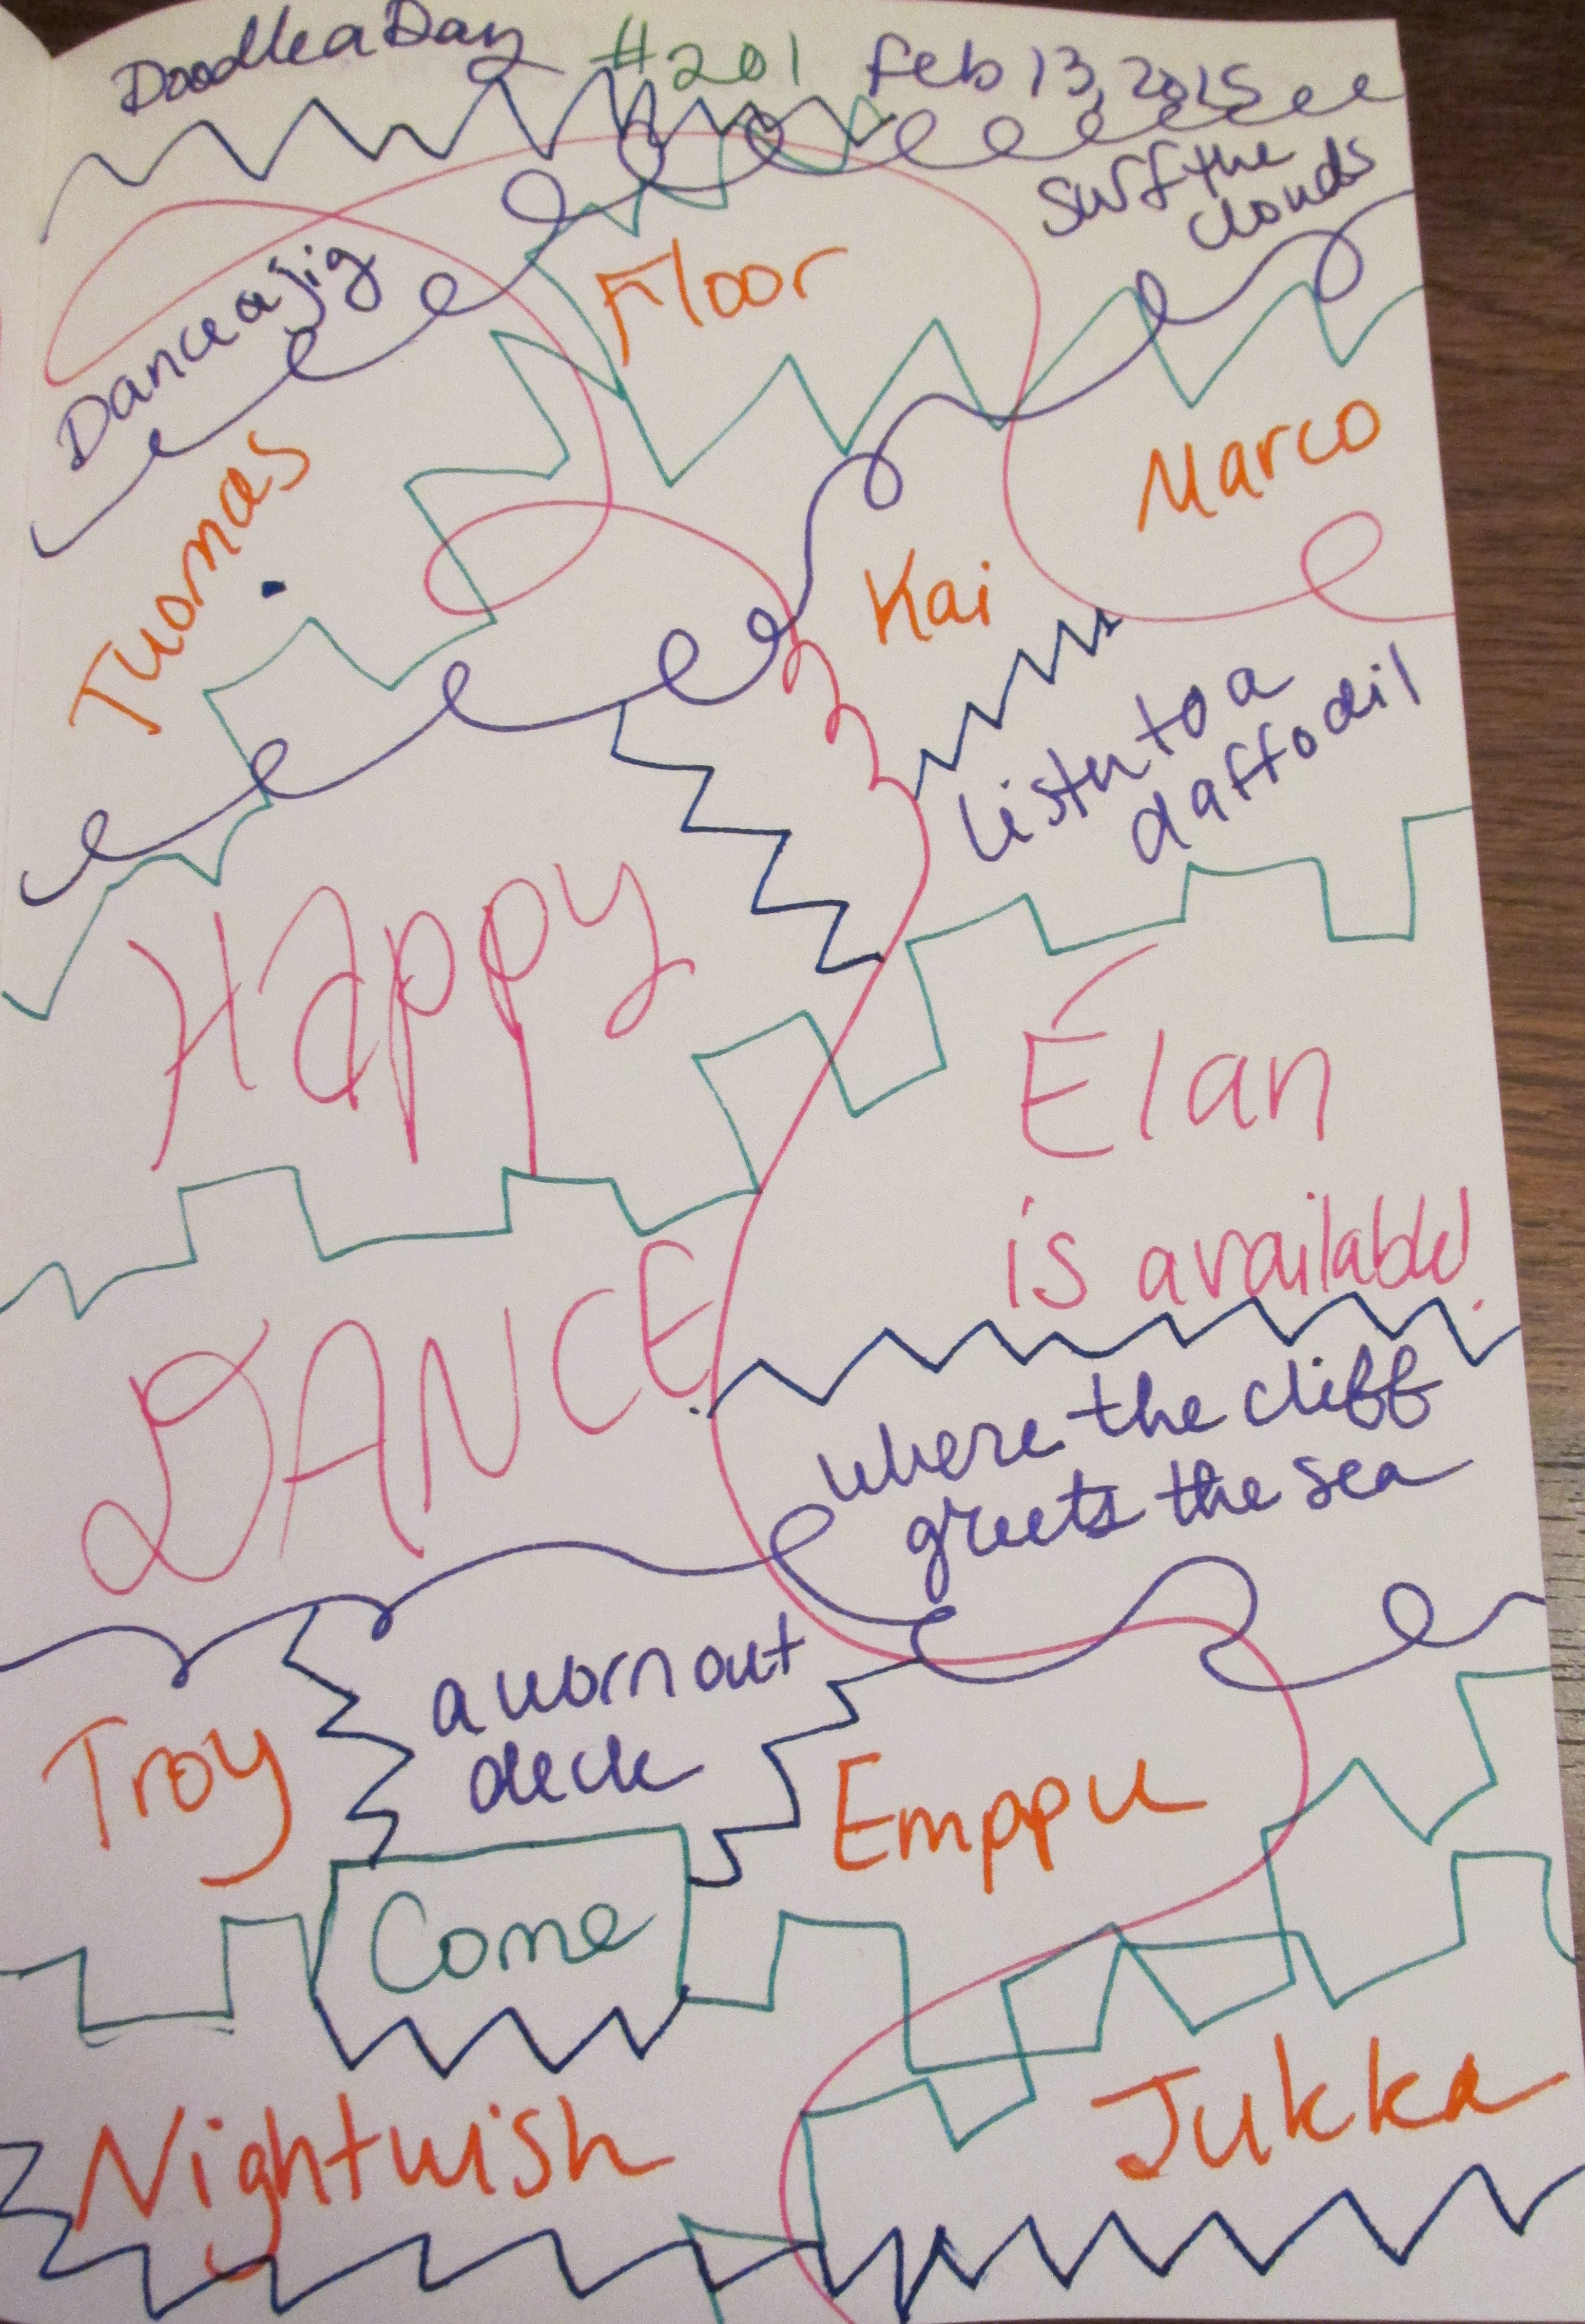 Doodle a Day #201 Feb 13, 2015
surf the
clouds
Dance a jig
Floor
Marco
Tuomas
Kai
listen to a
daffodil
Happy
Elan
is available!
DANCE
where the cliff
greets the sea
a worn out
deck
Troy
Emppu
Come
Jukka
Nightwish